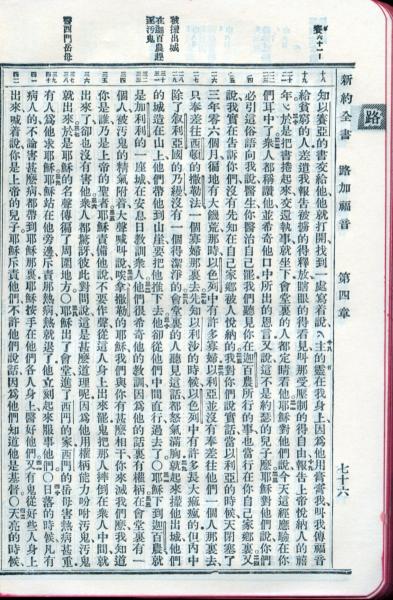 路
新約全書 路加福音 第四章 七十六
賽六十一1
被攆出城
在迦百農趕
逐汚鬼
醫西門岳母
知以賽亞的書交給他他就打開找到一處寫着說主的靈在我身上因爲他用膏膏我叫我傳福音
給貧窮的人差遣我報告被擄的得釋放瞎眼的得看見叫那受壓制的得自由報告上帝悅納人的禧
年於是把書捲起來交還執事就坐下會堂裏的人都定睛看他耶穌對他們說今天這經應驗在你
們耳中了衆人都稱讚他並希奇他口中所出的恩言又說這不是約瑟的兒子麼耶穌對他們說你們
必引這俗語向我說醫生你醫治自己罷我們聽見你在迦百農所行的事也當行在你自己家鄉裏又
說我實在告訴你們沒有先知在自己家鄉被人悅納的我對你們說實話當以利亞的時候天閉塞了
三年零六個月徧地有大饑荒那時以色列中有許多寡婦以利亞並沒有奉差往他們一個人那裏去
只奉差往西頓的撒勒法一個寡婦那裏去先知以利沙的時候以色列中有許多長大痲瘋的但內中
除了叙利亞國的乃縵沒有一個得潔淨的會堂裏的人聽見這話都怒氣滿胸就起來攆他出城他們
的城造在山上他們帶他到山崖要把他推下去他卻從他們中間直行過去了〇耶穌下到迦百農就
是加利利的一座城在安息日敎訓衆人他們很希奇他的敎訓因爲他的話裏有權柄在會堂裏有一
個人被汚鬼的精氣附着大聲喊叫說唉拿撒勒的耶穌我們與你有甚麼相干你來滅我們麼我知道
你是誰乃是上帝的聖者耶穌責備他說不要作聲從這人身上出來罷鬼把那人摔倒在衆人中間就
出來了卻也沒有害他衆人都驚訝彼此對問說這是甚麼道理呢因爲他用權柄能力吩咐汚鬼汚鬼
就出來於是耶穌的名聲傳徧了周圍地方〇耶穌出了會堂進了西門的家西門的岳母害熱病甚重
有人爲他求耶穌耶穌站在他旁邊斥責那熱病熱就退了他立刻起來服事他們〇日落的時候凡有
病人的不論害甚麼病都帶到耶穌那裏耶穌按手在他們各人身上醫好他們又有鬼從好些人身上
出來喊着說你是上帝的兒子耶穌斥責他們不許他們說話因爲他們知道他是基督〇天亮的時候